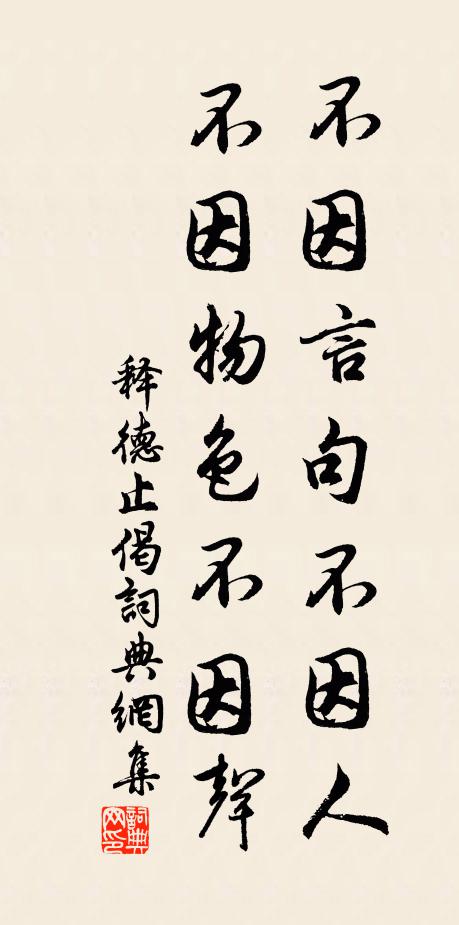 不因言句不因人
不因物色不因聲
释德止偈詞典網集
詞典网印